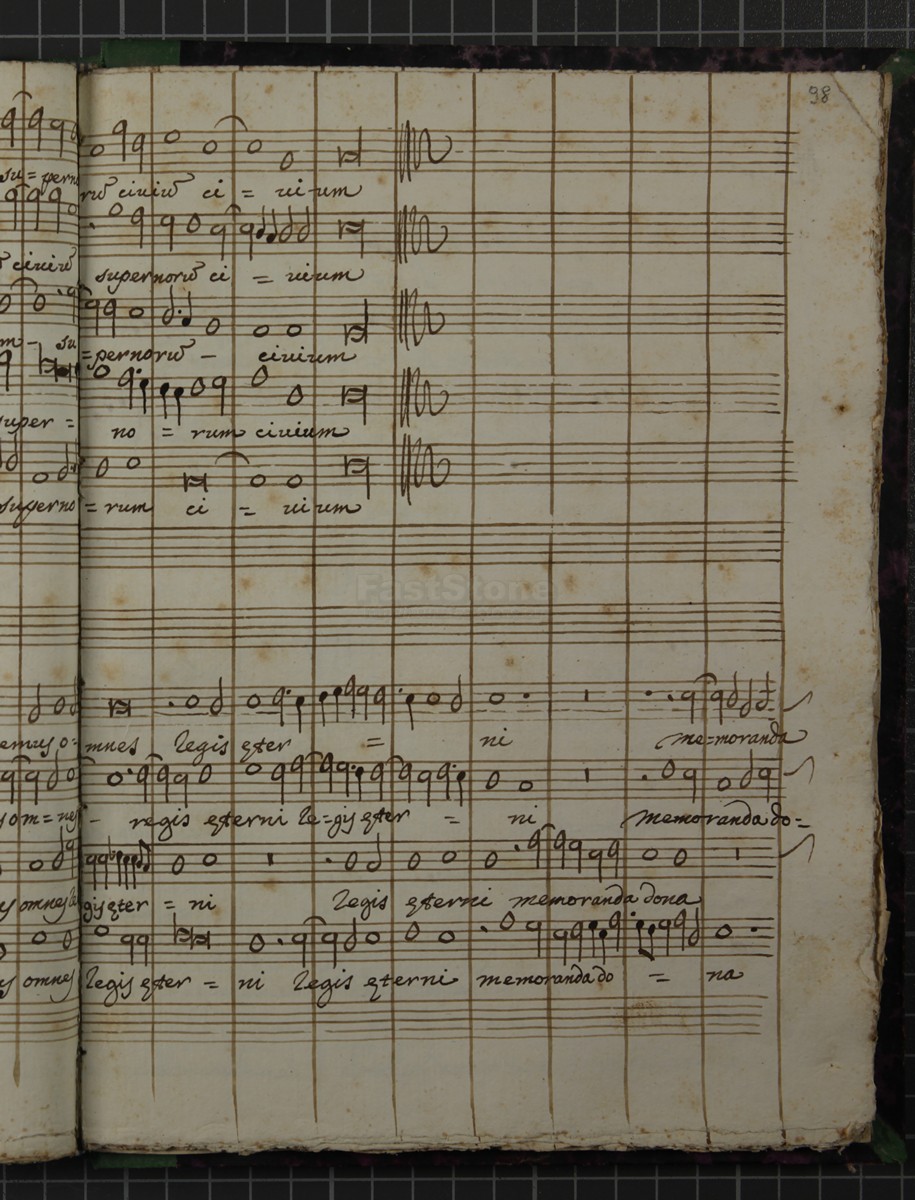 98
su = pern rũ ciuiũ ci = ui-um
ciuiũ supernorũ ci = uium
m - su = pernorũ - ciuium
super = no = rum ciuium
superno = rum ci = ui um
FastStone
emus o = mnes Regis ęter = ni me=moranda
om = nes - regis ęterni Re=gis ęter = ni memoranda do=
omnes Re gis ęter = ni Regis ęterni memoranda dona
omnes Regis ęter = ni Regis ęterni memoranda do = na